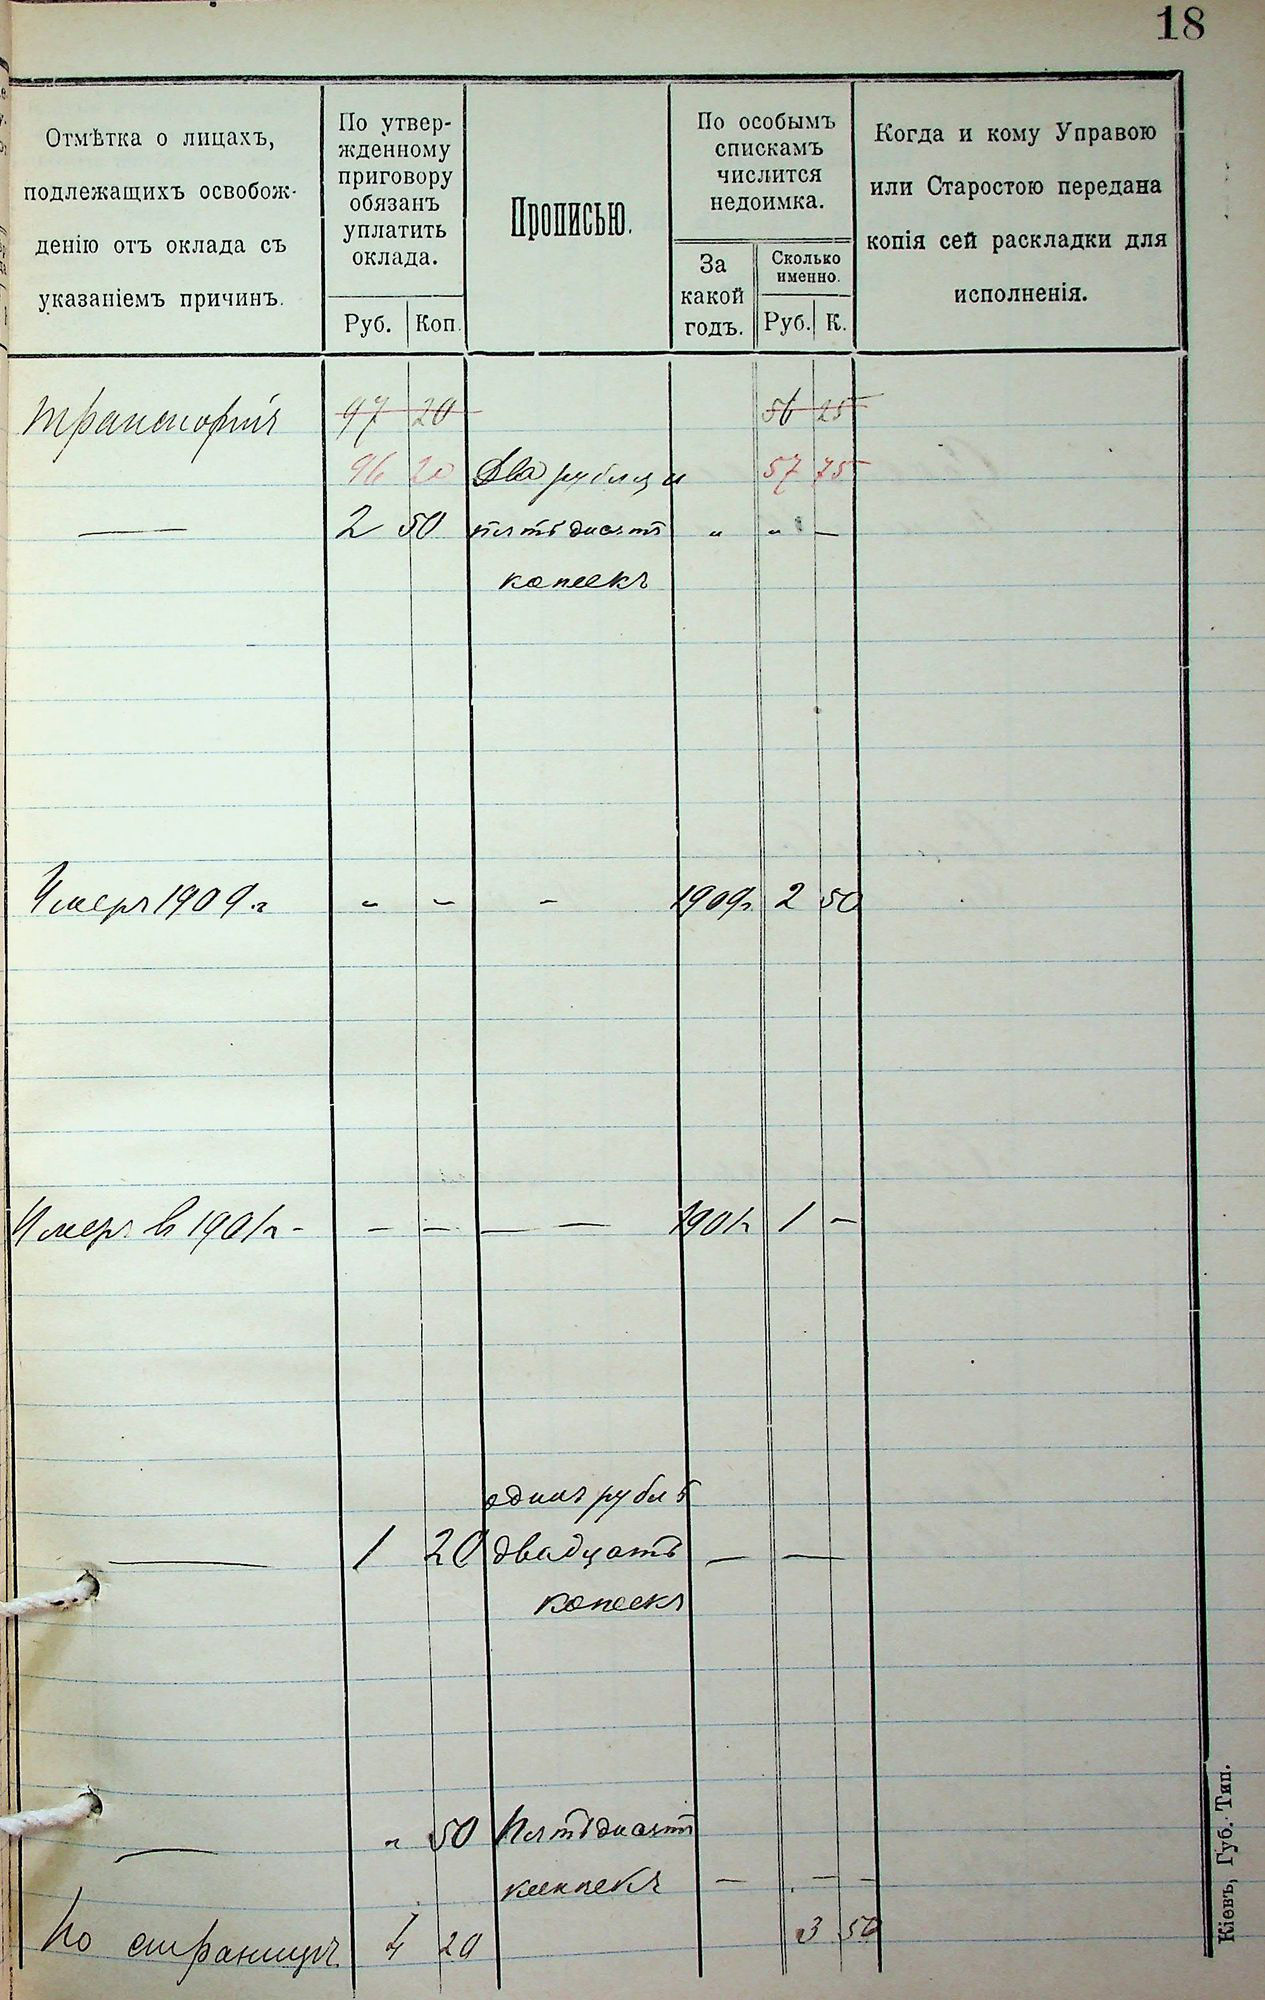 18
Отмѣтка о лицахъ,
подлежащихъ освобож-
денію отъ оклада съ
указаніемъ причинъ.
По утвер-
жденному
приговору
обязанъ
уплатить
оклада.
Руб. Коп.
Прописью.
По особымъ
спискамъ
числится
недоимка.
За
какой
годъ.
Сколько
именно.
Руб. К.
Когда и кому Управою
или Старостою передана
копія сей раскладки для
исполненія.
97 20 56 25
96 20 Два рубля и 57 75
— 2 50 пятьдесятъ „ „ —
копеекъ
Умеръ 1909 г. - - - 1909г. 2 50
Умеръ въ 1901г - — — — — 1901г 1 —
одинъ рубль
— 1 20 двадцать — —
копеекъ
— „ 50 Пятьдесятъ
копеекъ — — —
По страницѣ 4 20 3 50
Кіевъ, Губ. Тип.